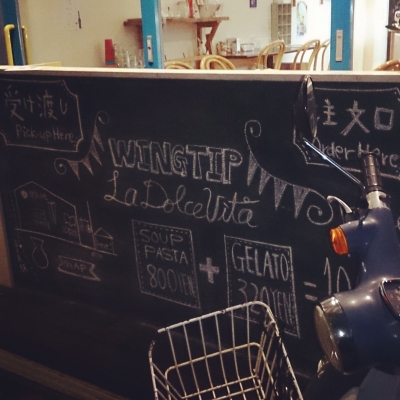 受け渡し
Pick-up Here
注文口
Order Here
WINGTIP
La Dolce Vita
SOUP
PASTA
800YEN
+
GELATO
320YEN
= 10